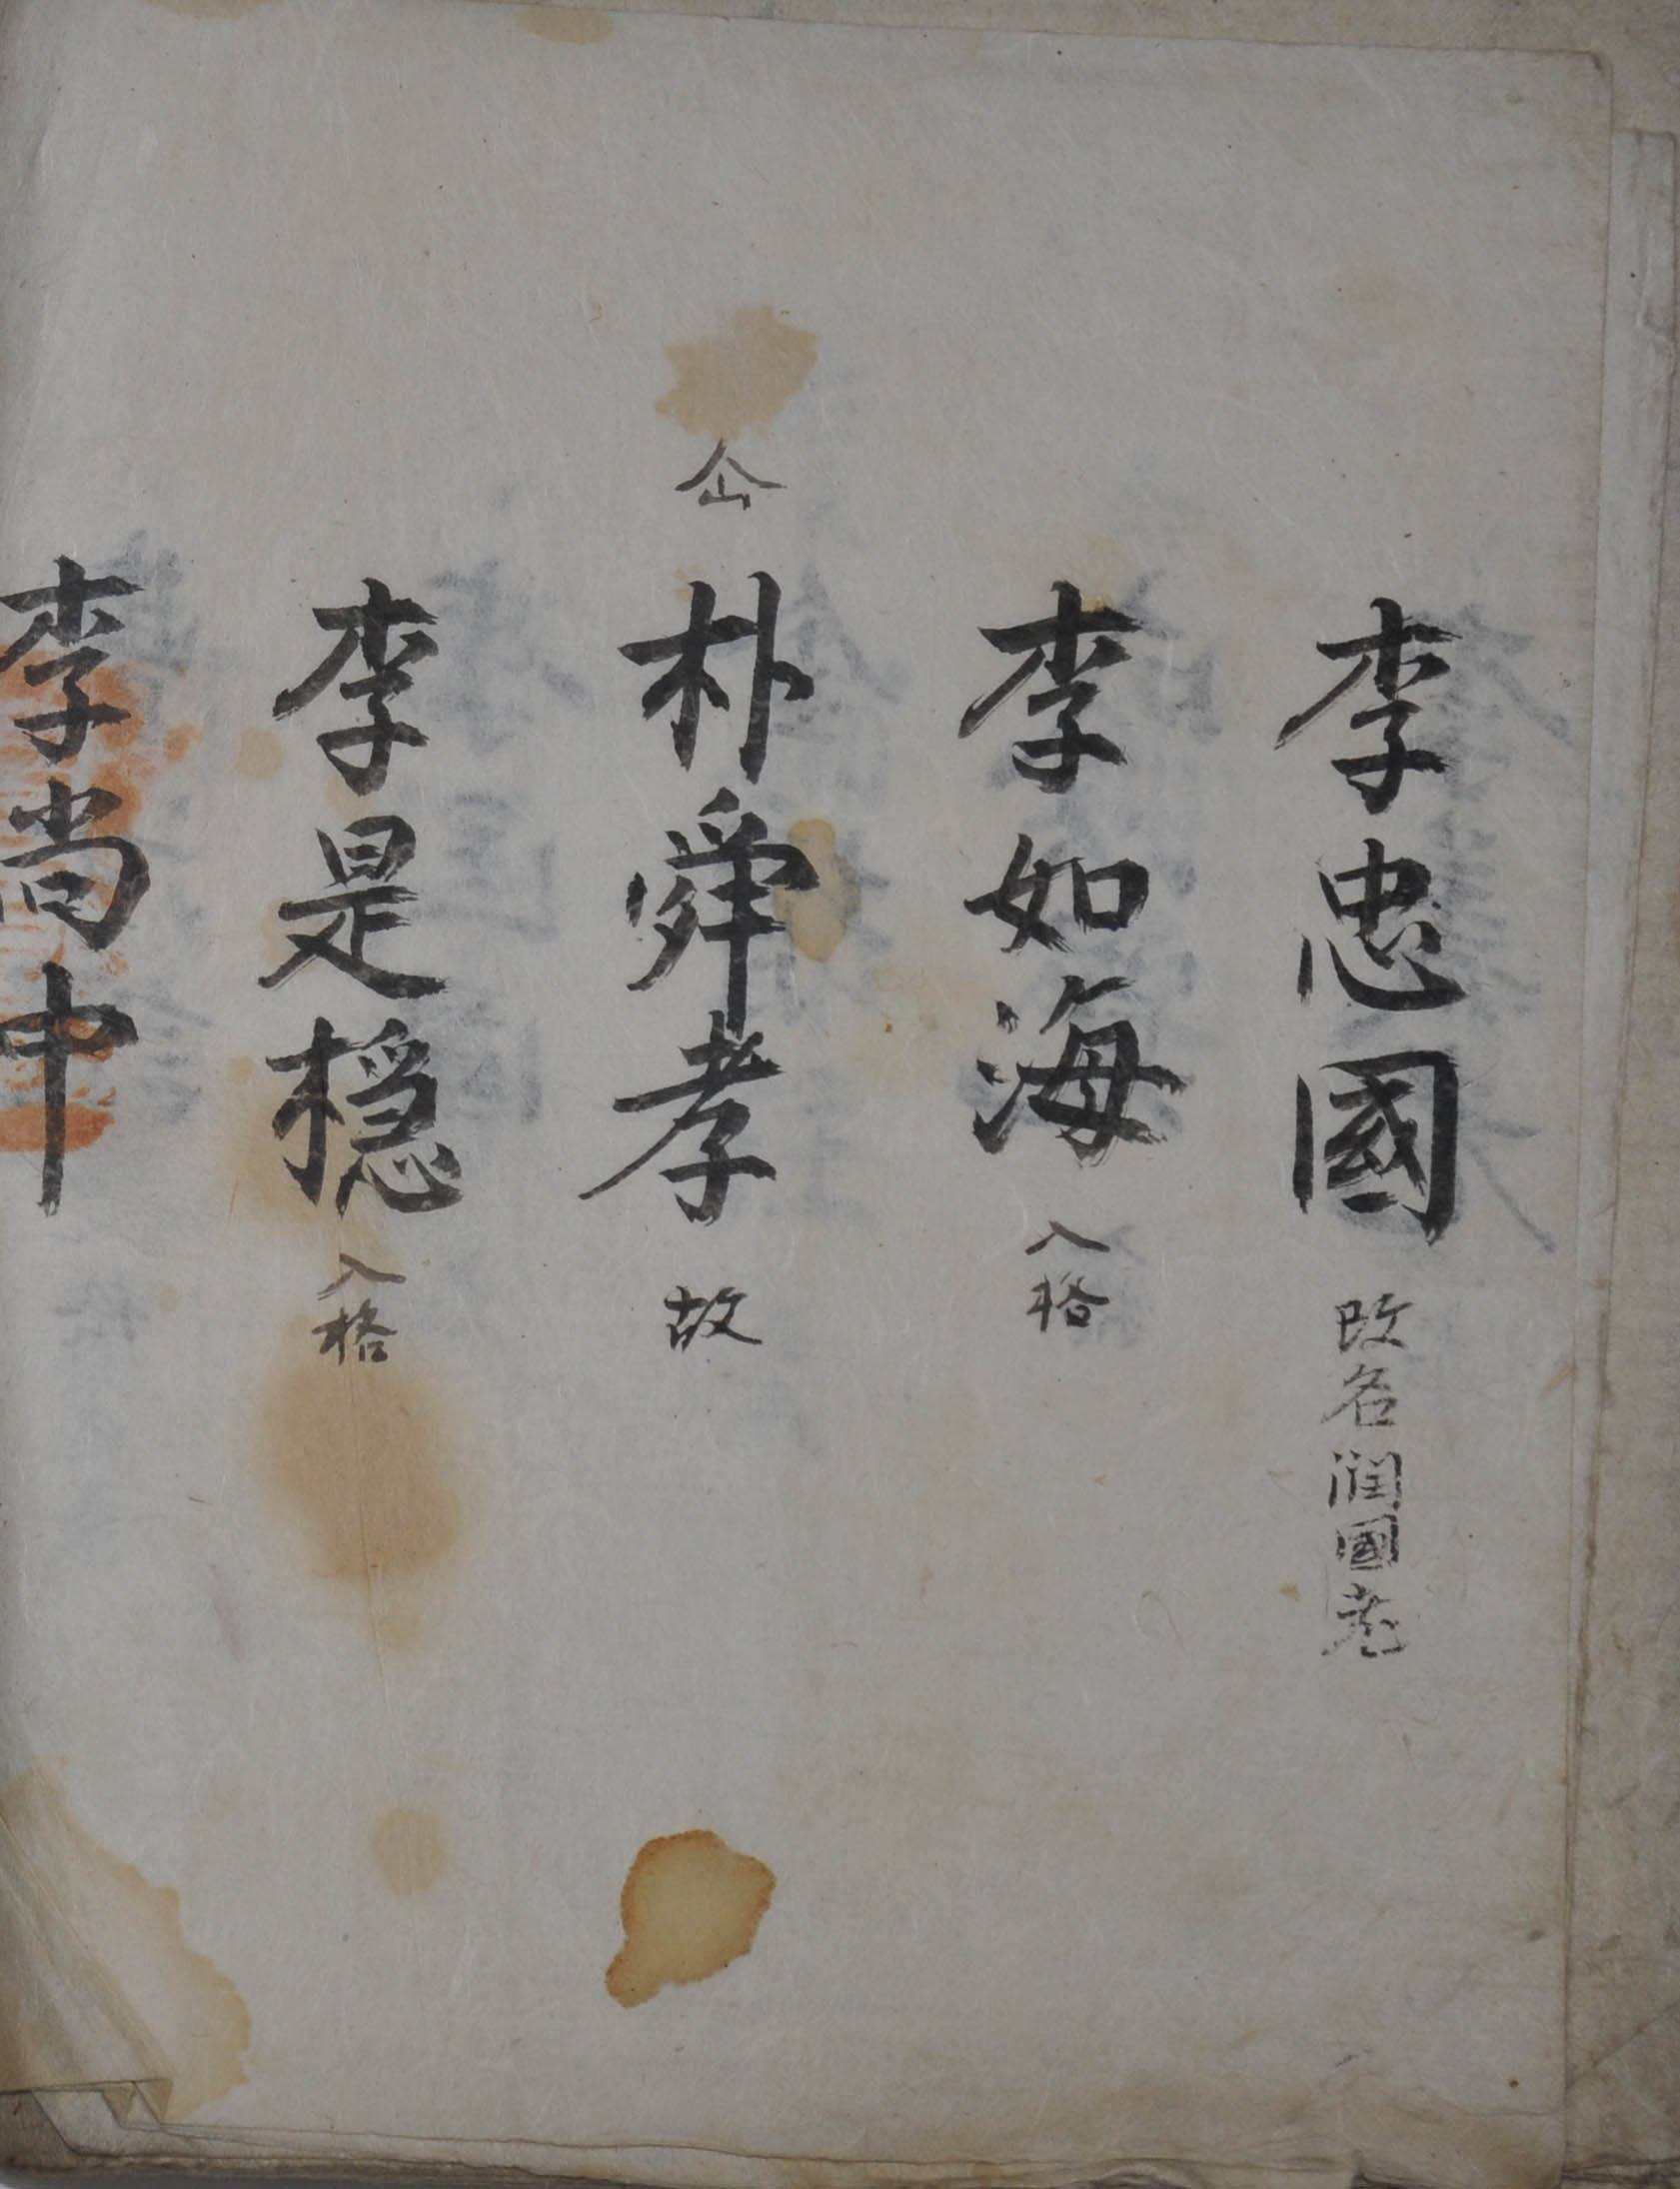 李忠國 改名潤國老
李如海 入格
朴舜孝 故
李是穩 入格
李尚中